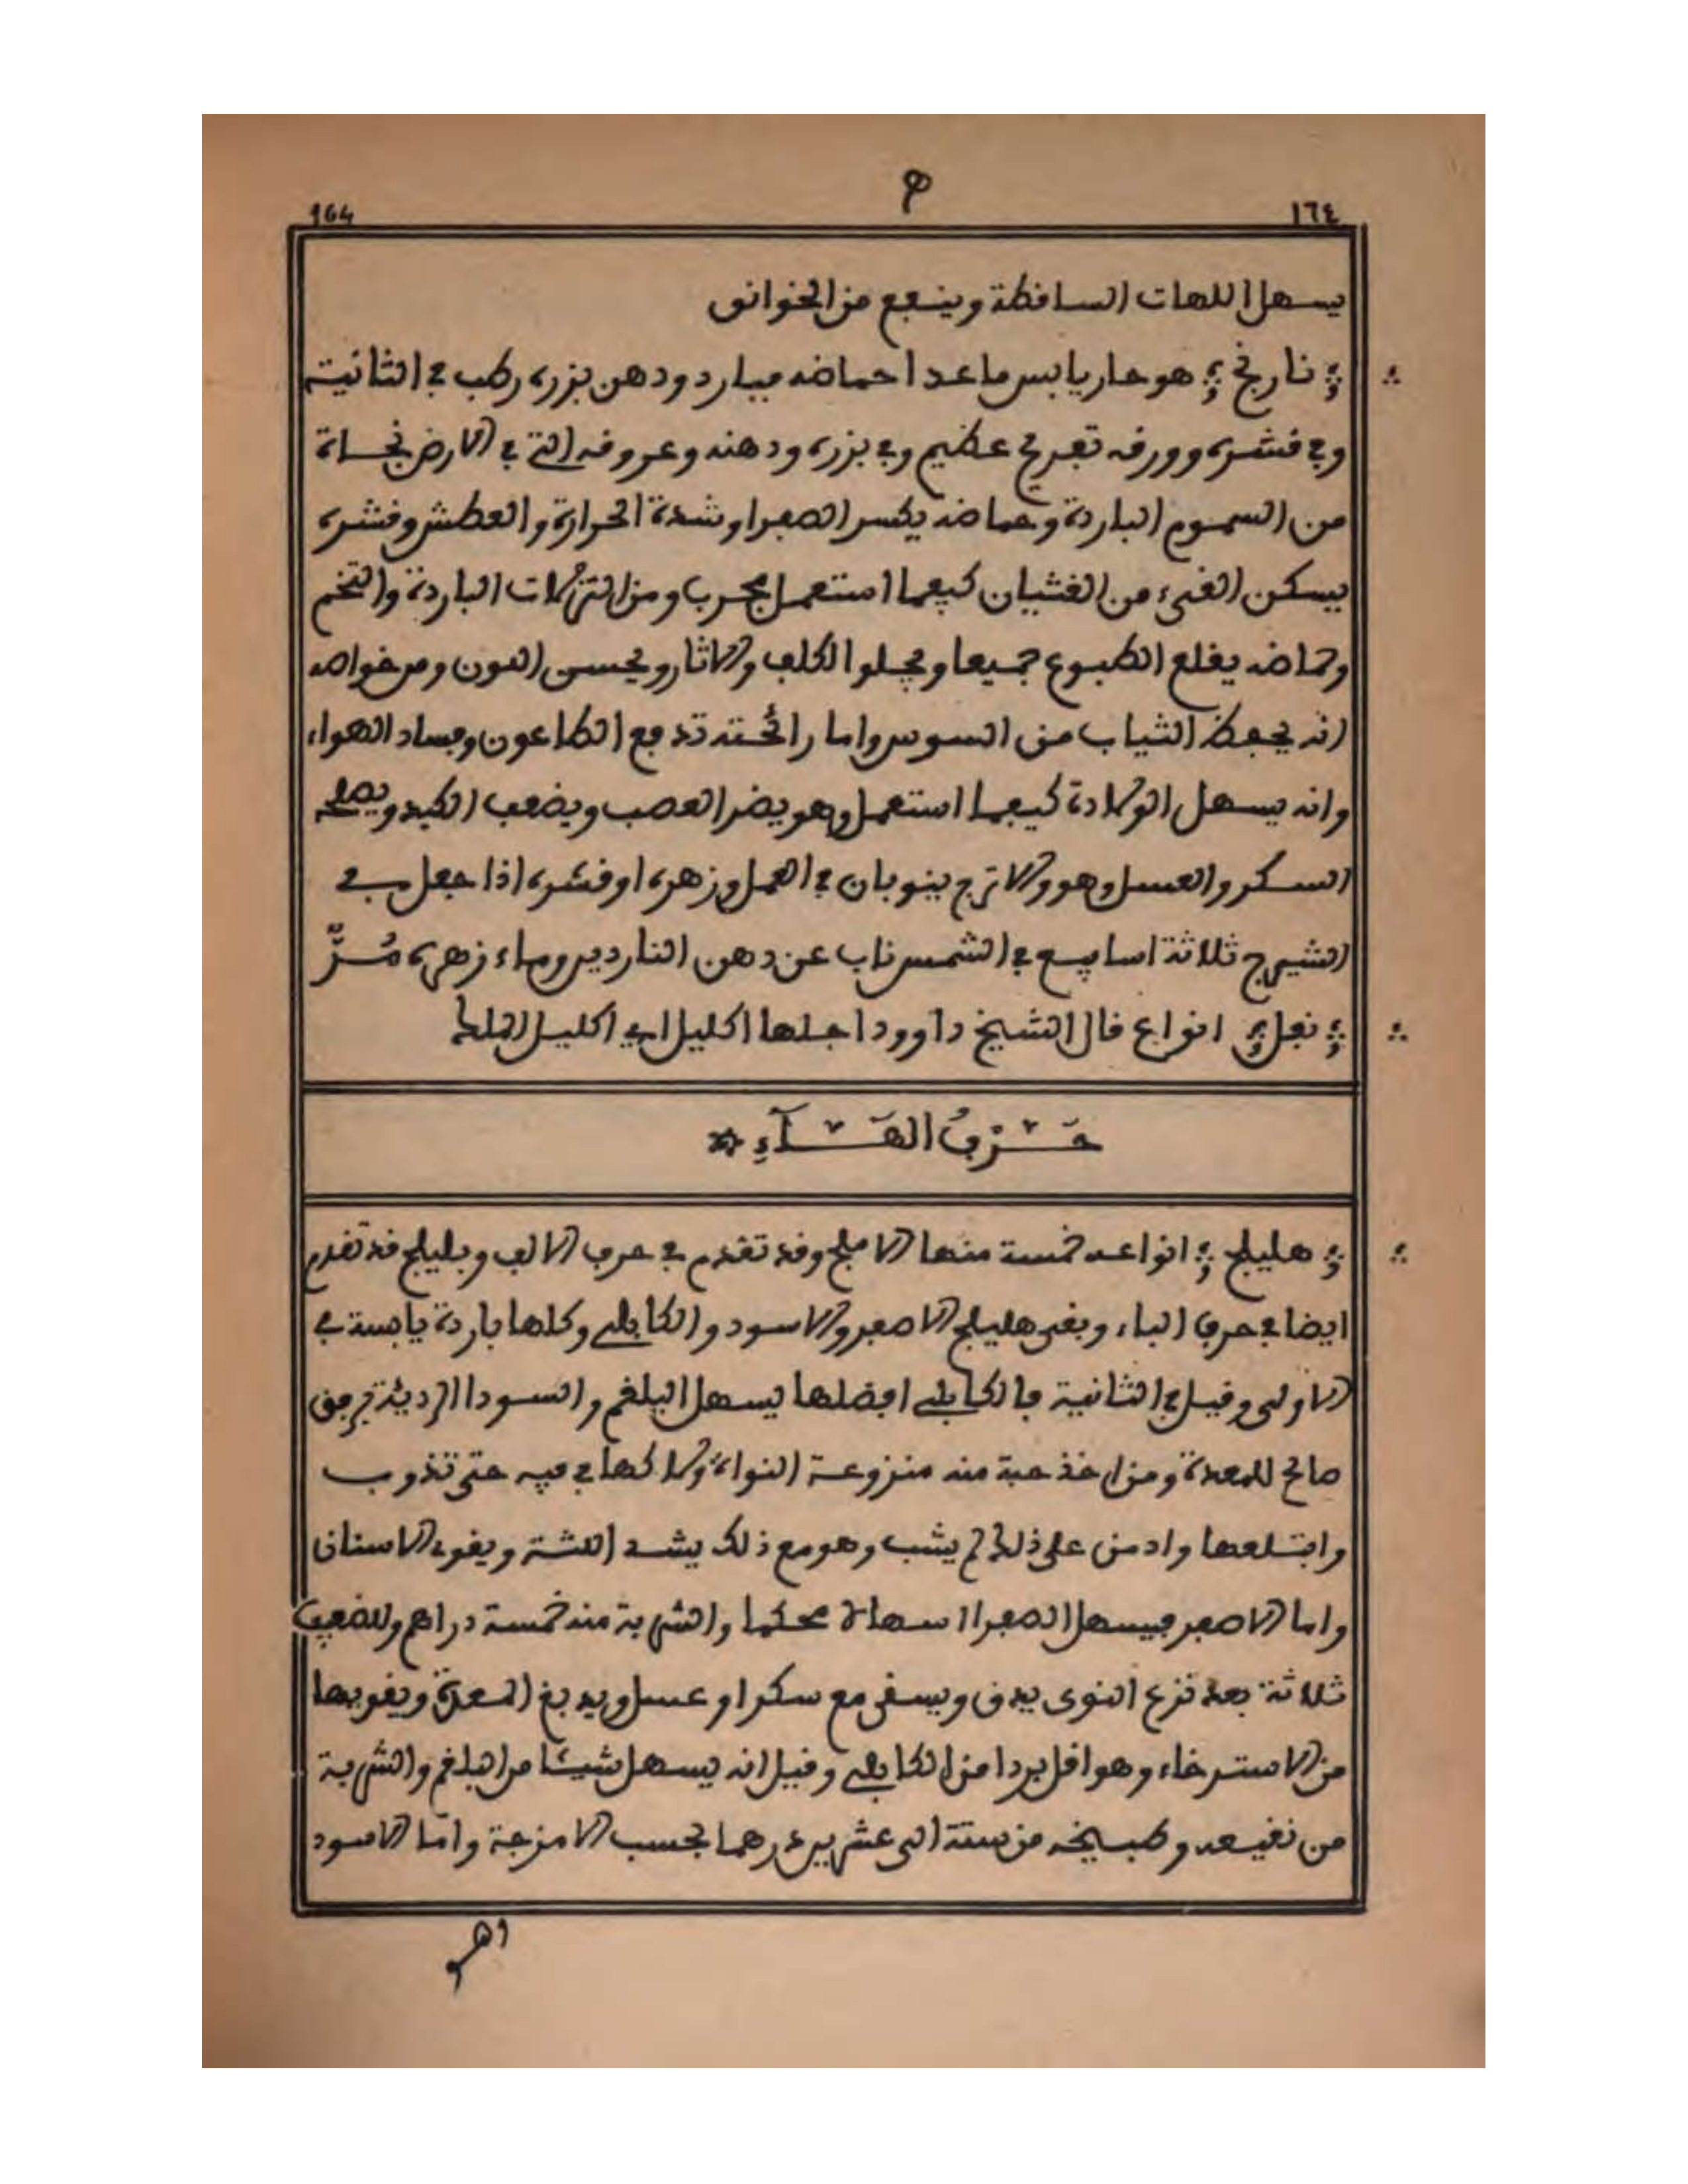 164
ه
١٦٤
يسهل اللهات الساقطة وينفع من الخوانق
نارنج هو حار يابس ما عدا حماضه فبارد ودهن بزره رطب في الثانية
وفي قشره وورقه تفريح عظيم وفي بزره ودهنه وعروقه التي في الارض نجاة
من السموم الباردة وحماضه يكسر الصفرا وشدة الحرارة والعطش وقشره
يسكن القيء من الغثيان كيفما استعمل مجرب ومن النزلات الباردة والتخم
وحماضه يقلع الطبوع جميعا ويجلوا الكلف والاثار ويحسن اللون ومن خواصه
انه يحفظ الثياب من السوس واما رائحته تدفع الطاعون وفساد الهواء
وانه يسهل الولادة كيفما استعمل وهو يضر العصب ويضعف الكبد ويصلحه
السكر والعسل وهو والاترج ينوبان في العمل وزهره او قشره اذا جعل في
الشيرج ثلاثة اسابيع في الشمس ناب عن دهن الناردين وماء زهره مُزٌّ
نفل انواع قال الشيخ داوود اجلها اكليل اي اكليل الملك
حَرْفُ الهَآءِ
هليلج انواعه خمسة منها الاملج وقد تقدم في حرف الالف وبليلج قد تقدم
ايضا في حرف الباء وبقي هليلج الاصفر والاسود والكابلي وكلها باردة يابسة في
الاولى وقيل في الثانية فالكابلي افضلها يسهل البلغم والسودا الردية برفق
صالح للمعدة ومن اخذ حبة منه منزوعة النواة ولاكها في فيه حتى تذوب
وابتلعها وادمن على ذلك لم يشب وهو مع ذلك يشد اللثة ويقوي الاسنان
واما الاصفر فيسهل الصفرا اسهالا محكما والشربة منه خمسة دراهم وللضعيف
ثلاثة بعد نزع النوى يدق ويسقى مع سكر او عسل ويدبغ المعدة ويقويها
من الاسترخاء وهو اقل بردا من الكابلي وقيل انه يسهل شيئا من البلغم والشربة
من نقيعه وطبيخه من ستة الى عشرين درهما بحسب الامزجة واما الاسود
وهو